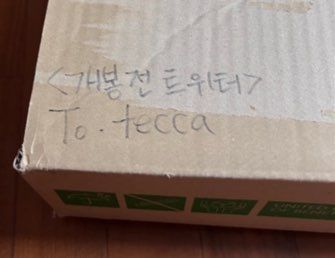 <개봉전 트위터>
To. tecca